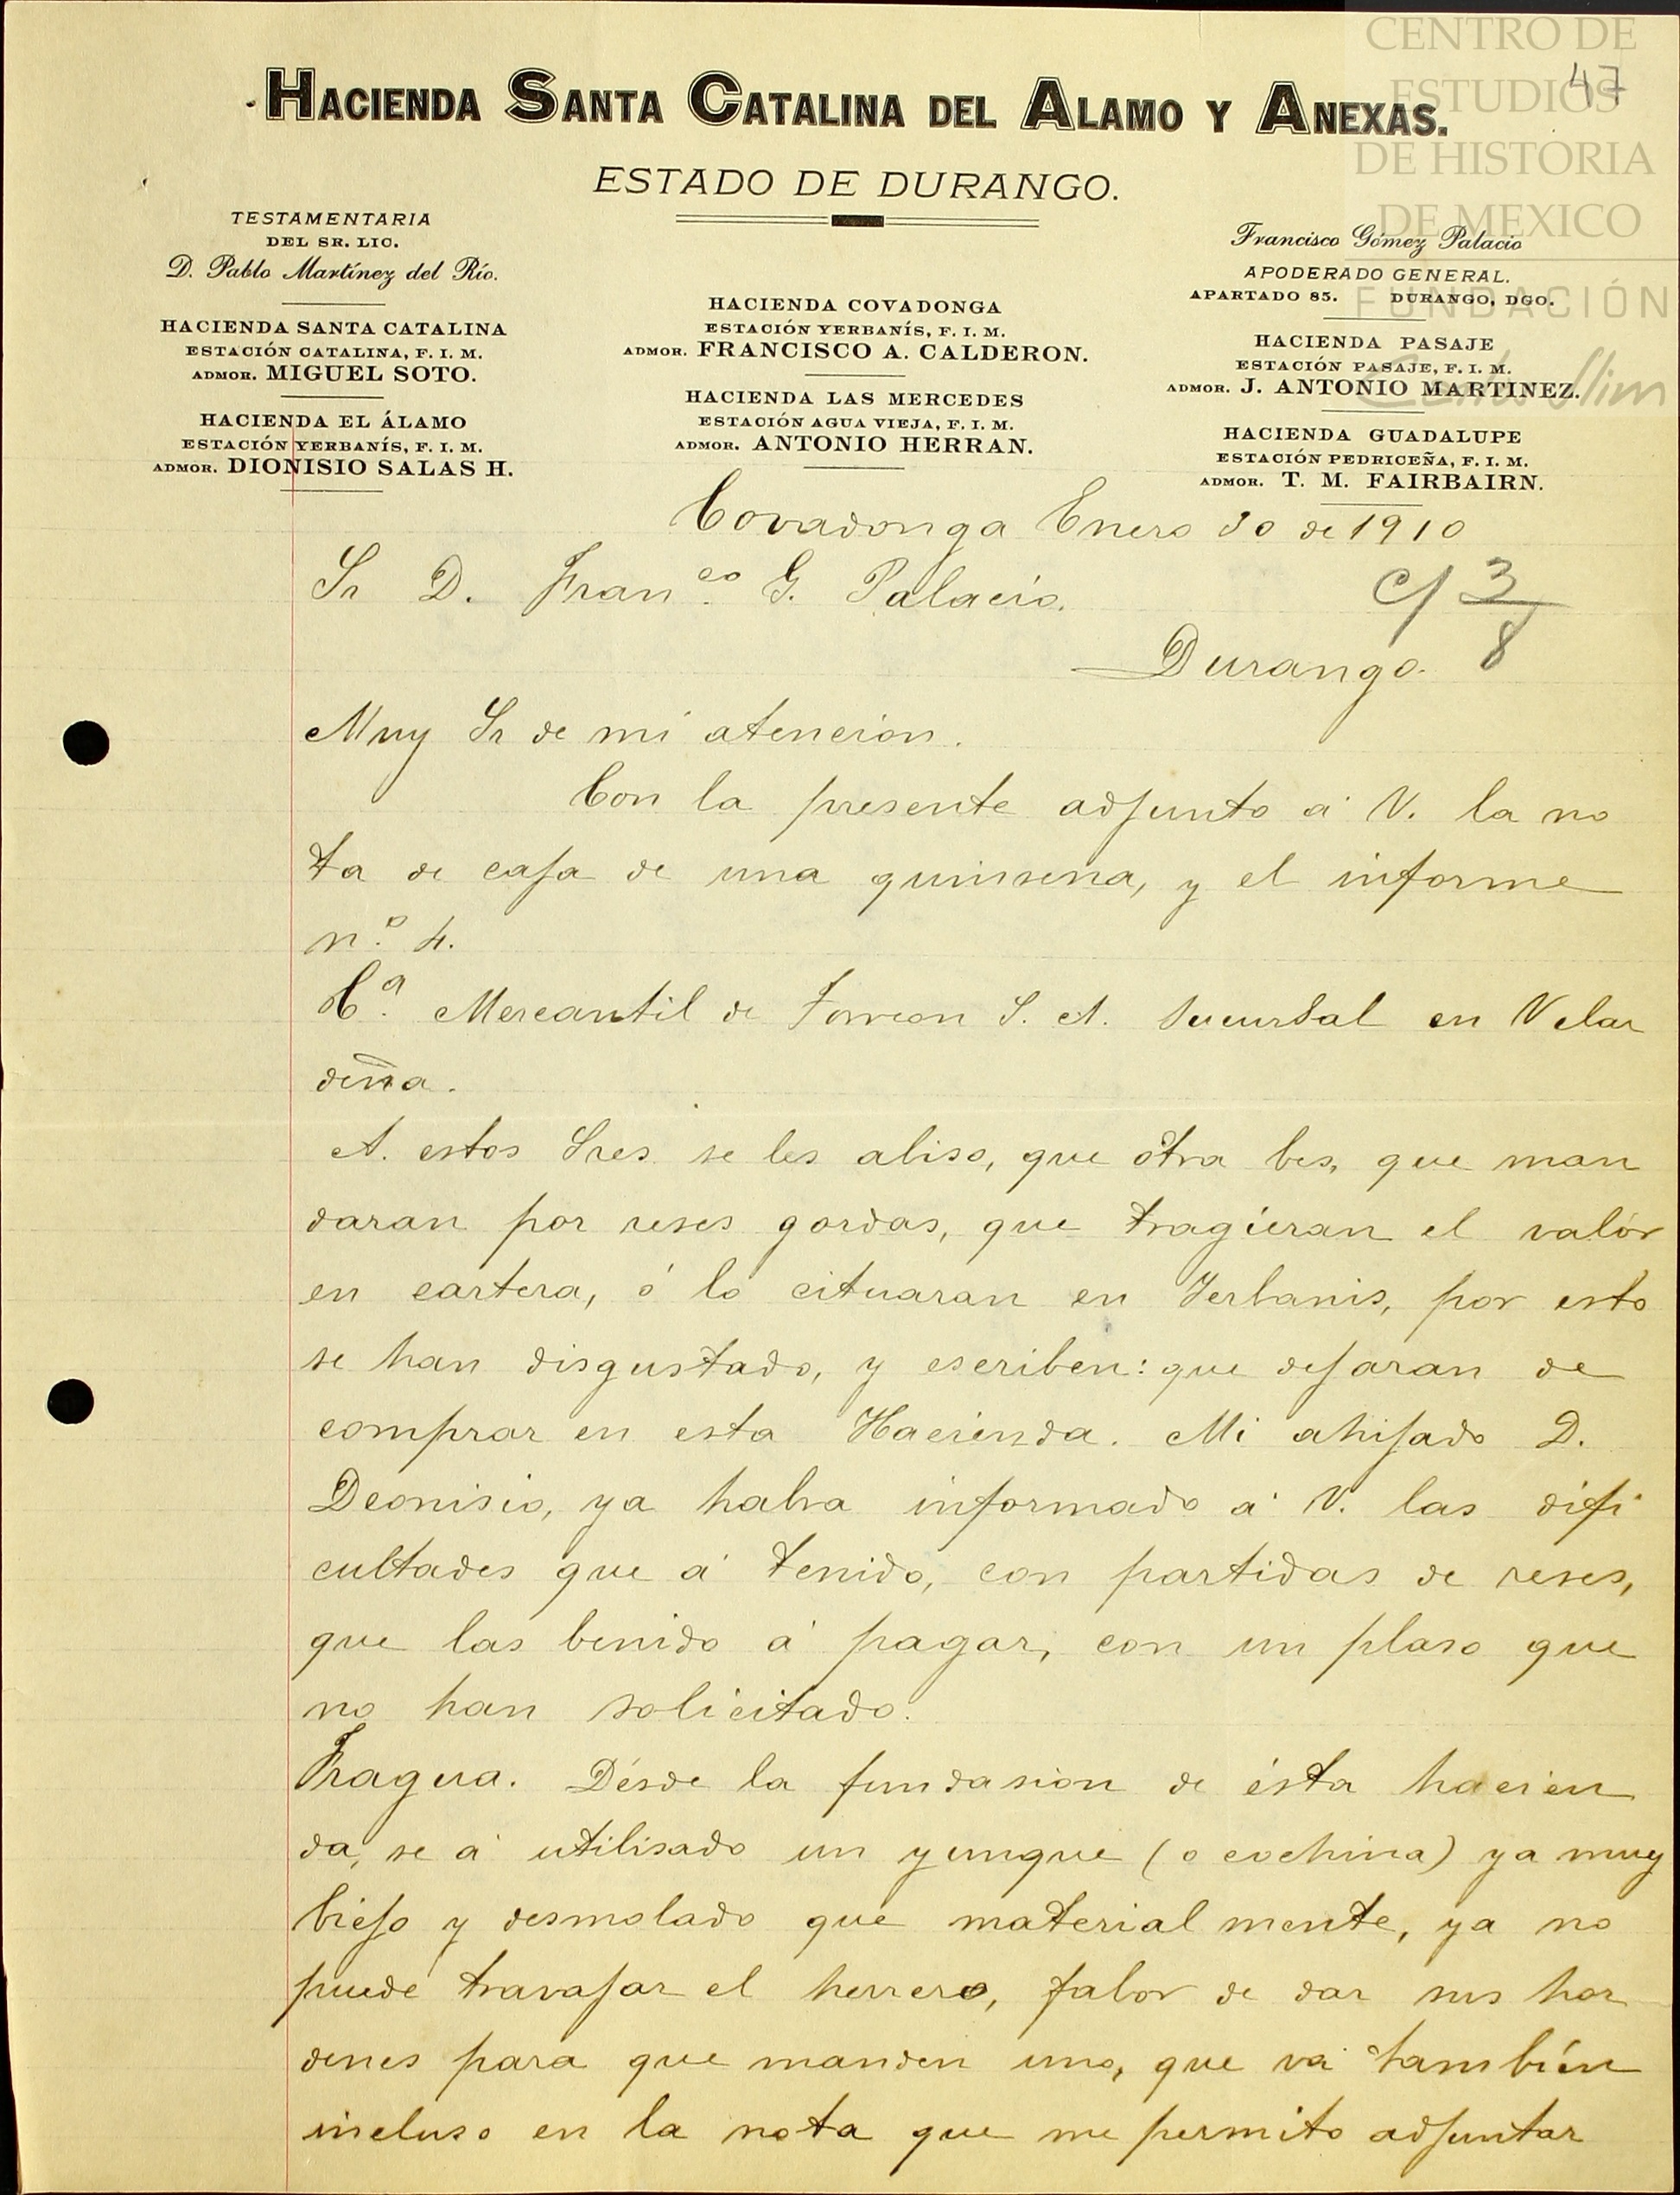 CENTRO DE
ESTUDIOS
DE HISTORIA
DE MEXICO
FUNDACIÓN
Carlos Slim
47
HACIENDA SANTA CATALINA DEL ALAMO Y ANEXAS.
ESTADO DE DURANGO.
TESTAMENTARIA
DEL SR. LIC.
D. Pablo Martínez del Río.
HACIENDA SANTA CATALINA
ESTACIÓN CATALINA, F. I. M.
ADMOR. MIGUEL SOTO.
HACIENDA EL ÁLAMO
ESTACIÓN YERBANÍS, F. I. M.
ADMOR. DIONISIO SALAS H.
HACIENDA COVADONGA
ESTACIÓN YERBANÍS, F. I. M.
ADMOR. FRANCISCO A. CALDERON.
HACIENDA LAS MERCEDES
ESTACIÓN AGUA VIEJA, F. I. M.
ADMOR. ANTONIO HERRAN.
Francisco Gómez Palacio
APODERADO GENERAL.
APARTADO 85. DURANGO, DGO.
HACIENDA PASAJE
ESTACIÓN PASAJE, F. I. M.
ADMOR. J. ANTONIO MARTINEZ.
HACIENDA GUADALUPE
ESTACIÓN PEDRICEÑA, F. I. M.
ADMOR. T. M. FAIRBAIRN.
Covadonga Enero 30 de 1910
Sr D. Fran.co G. Palacio.
c/ 3/8
Durango.
Muy Sr de mi atencion.
Con la presente adjunto á V. la no
ta de caja de una quinsena, y el informe
n.º 4.
C.ª Mercantil de Torreon S. A. Sucursal en Velar
deña.
A. estos Sres se les abiso, que ótra bes, que man
daran por reses gordas, que tragieran el valór
en cartera, ó lo cituaran en Yerbanis, por esto
se han disgustado, y escriben: que dejaran de
comprar en esta Hacienda. Mi ahijado D.
Deonisio, ya habra informado á V. las difi
cultades que á tenido, con partidas de reses,
que las benido á pagar, con un plaso que
no han solicitado.
Fragua. Désde la fundasion de ésta hacien
da, se á utilisado un yunque (o cochina) ya muy
biejo y desmolado que material mente, ya no
puede travajar el herrero, fabor de dar sus hor
denes para que manden uno, que va tambien
incluso en la nota que me permito adjuntar